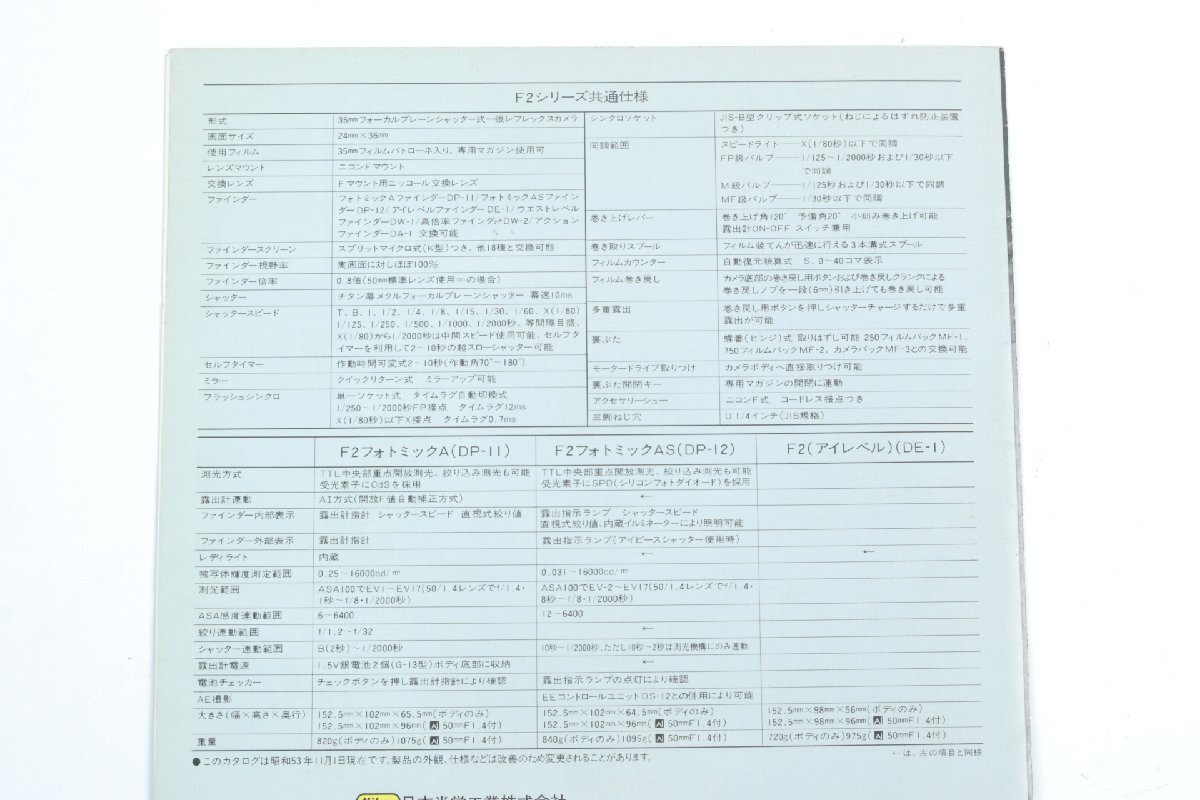 F2シリーズ共通仕様
形式 35mmフォーカルプレーンシャッター式一眼レフレックスカメラ
画面サイズ 24mm×36mm
使用フィルム 35mmフィルムパトローネ入り、専用マガジン使用可
レンズマウント ニコンFマウント
交換レンズ Fマウント用ニッコール交換レンズ
ファインダー フォトミックAファインダーDP-11/フォトミックASファイン
ダーDP-12/アイレベルファインダーDE-1/ウエストレベル
ファインダーDW-1/高倍率ファインダーDW-2/アクション
ファインダーDA-1 交換可能
ファインダースクリーン スプリットマイクロ式(K型)つき、他18種と交換可能
ファインダー視野率 実画面に対しほぼ100%
ファインダー倍率 0.8倍(50mm標準レンズ使用∞の場合)
シャッター チタン幕メタルフォーカルプレーンシャッター 幕速10ms
シャッタースピード T、B、1、1/2、1/4、1/8、1/15、1/30、1/60、X(1/80)
1/125、1/250、1/500、1/1000、1/2000秒、等間隔目盛、
X(1/80)から1/2000秒は中間スピード使用可能、セルフタ
イマーを利用して2~10秒の超スローシャッター可能
セルフタイマー 作動時間可変式2~10秒(作動角70°~180°)
ミラー クイックリターン式 ミラーアップ可能
フラッシュシンクロ 単一ソケット式 タイムラグ自動切換式
1/250~1/2000秒FP接点 タイムラグ12ms
X(1/80秒)以下X接点 タイムラグ0.7ms
シンクロソケット JIS-B型クリップ式ソケット(ねじによるはずれ防止装置
つき)
同調範囲 スピードライト——X(1/80秒)以下で同調
FP級バルブ——1/125~1/2000秒および1/30秒以下
で同調
M級バルブ——1/125秒および1/30秒以下で同調
MF級バルブ——1/30秒以下で同調
巻き上げレバー 巻き上げ角120° 予備角20° 小刻み巻き上げ可能
露出計ON-OFF スイッチ兼用
巻き取りスプール フィルム装てんが迅速に行える3本溝式スプール
フィルムカウンター 自動復元順算式 S、0~40コマ表示
フィルム巻き戻し カメラ底部の巻き戻し用ボタンおよび巻き戻しクランクによる
巻き戻しノブを一段(6mm)引き上げても巻き戻し可能
多重露出 巻き戻し用ボタンを押しシャッターチャージするだけで多重
露出が可能
裏ぶた 蝶番(ヒンジ)式 取りはずし可能 250フィルムバックMF-1、
750フィルムバックMF-2、カメラバックMF-3との交換可能
モータードライブ取りつけ カメラボディへ直接取りつけ可能
裏ぶた開閉キー 専用マガジンの開閉に連動
アクセサリーシュー ニコンF式 コードレス接点つき
三脚ねじ穴 U1/4インチ(JIS規格)
F2フォトミックA(DP-11) F2フォトミックAS(DP-12) F2(アイレベル)(DE-1)
測光方式 TTL中央部重点開放測光、絞り込み測光も可能 TTL中央部重点開放測光、絞り込み測光も可能
受光素子にCdSを採用 受光素子にSPD(シリコンフォトダイオード)を採用
露出計連動 AI方式(開放F値自動補正方式) ←
ファインダー内部表示 露出計指針 シャッタースピード 直視式絞り値 露出指示ランプ シャッタースピード
直視式絞り値、内蔵イルミネーターにより照明可能
ファインダー外部表示 露出計指針 露出指示ランプ(アイピースシャッター使用時)
レディライト 内蔵 ← ←
被写体輝度測定範囲 0.25~16000cd/m² 0.031~16000cd/m²
測光範囲 ASA100でEV1~EV17(50/1.4レンズでf/1.4・ ASA100でEV-2~EV17(50/1.4レンズでf/1.4・
1秒~f/8・1/2000秒) 8秒~f/8・1/2000秒)
ASA感度連動範囲 6~6400 12~6400
絞り連動範囲 f/1.2~f/32 ←
シャッター連動範囲 B(2秒)~1/2000秒 10秒~1/2000秒、ただし10秒~2秒は測光機構にのみ連動
露出計電源 1.5V銀電池2個(G-13型)ボディ底部に収納 ←
電池チェッカー チェックボタンを押し露出計指針により確認 露出指示ランプの点灯により確認
AE撮影 EEコントロールユニットDS-12との併用により可能
大きさ(幅×高さ×奥行) 152.5mm×102mm×65.5mm(ボディのみ) 152.5mm×102mm×64.5mm(ボディのみ) 152.5mm×98mm×56mm(ボディのみ)
152.5mm×102mm×96mm(AI 50mmF1.4付) 152.5mm×102mm×96mm(AI 50mmF1.4付) 152.5mm×98mm×96mm(AI 50mmF1.4付)
重量 820g(ボディのみ)1075g(AI 50mmF1.4付) 840g(ボディのみ)1095g(AI 50mmF1.4付) 720g(ボディのみ)975g(AI 50mmF1.4付)
●このカタログは昭和53年11月1日現在です。製品の外観、仕様などは改善のため変更されることがあります。 ←は、左の項目と同様
日本光学工業株式会社